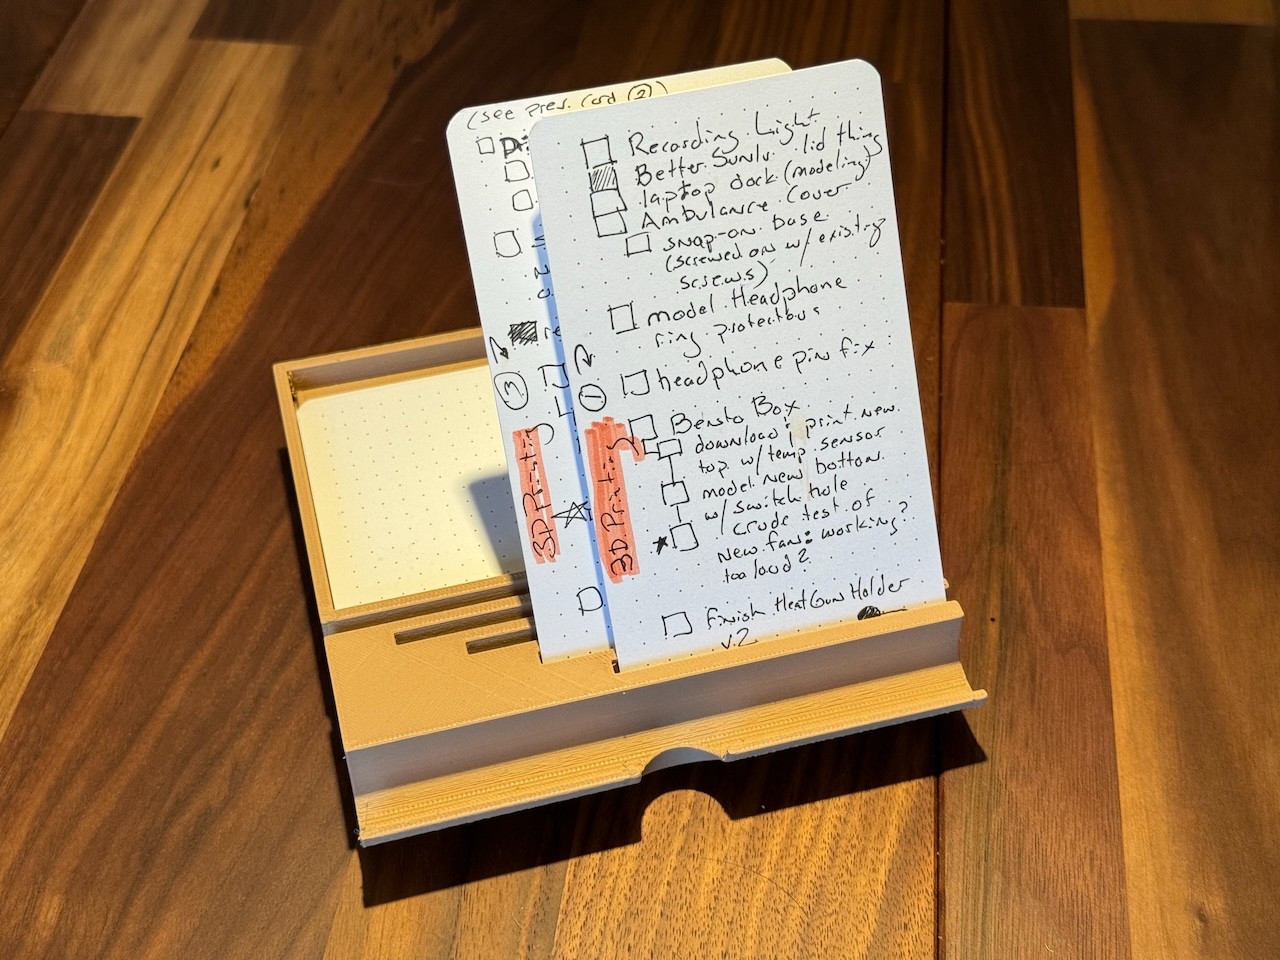 (see prev. card ②)
Recording Light
Better lid thing
laptop dock (modeling)
Ambulance Cover
snap-on base
(screwed on w/ existing
screws)
model Headphone
ring
headphone pin fix
Bento Box
download print new
top w/ temp sensor
model new bottom
w/ switch hole
crude test of
new fan: working?
too loud?
Finish HeatGun Holder
v2
① 3D Printing
③ 3D Printing